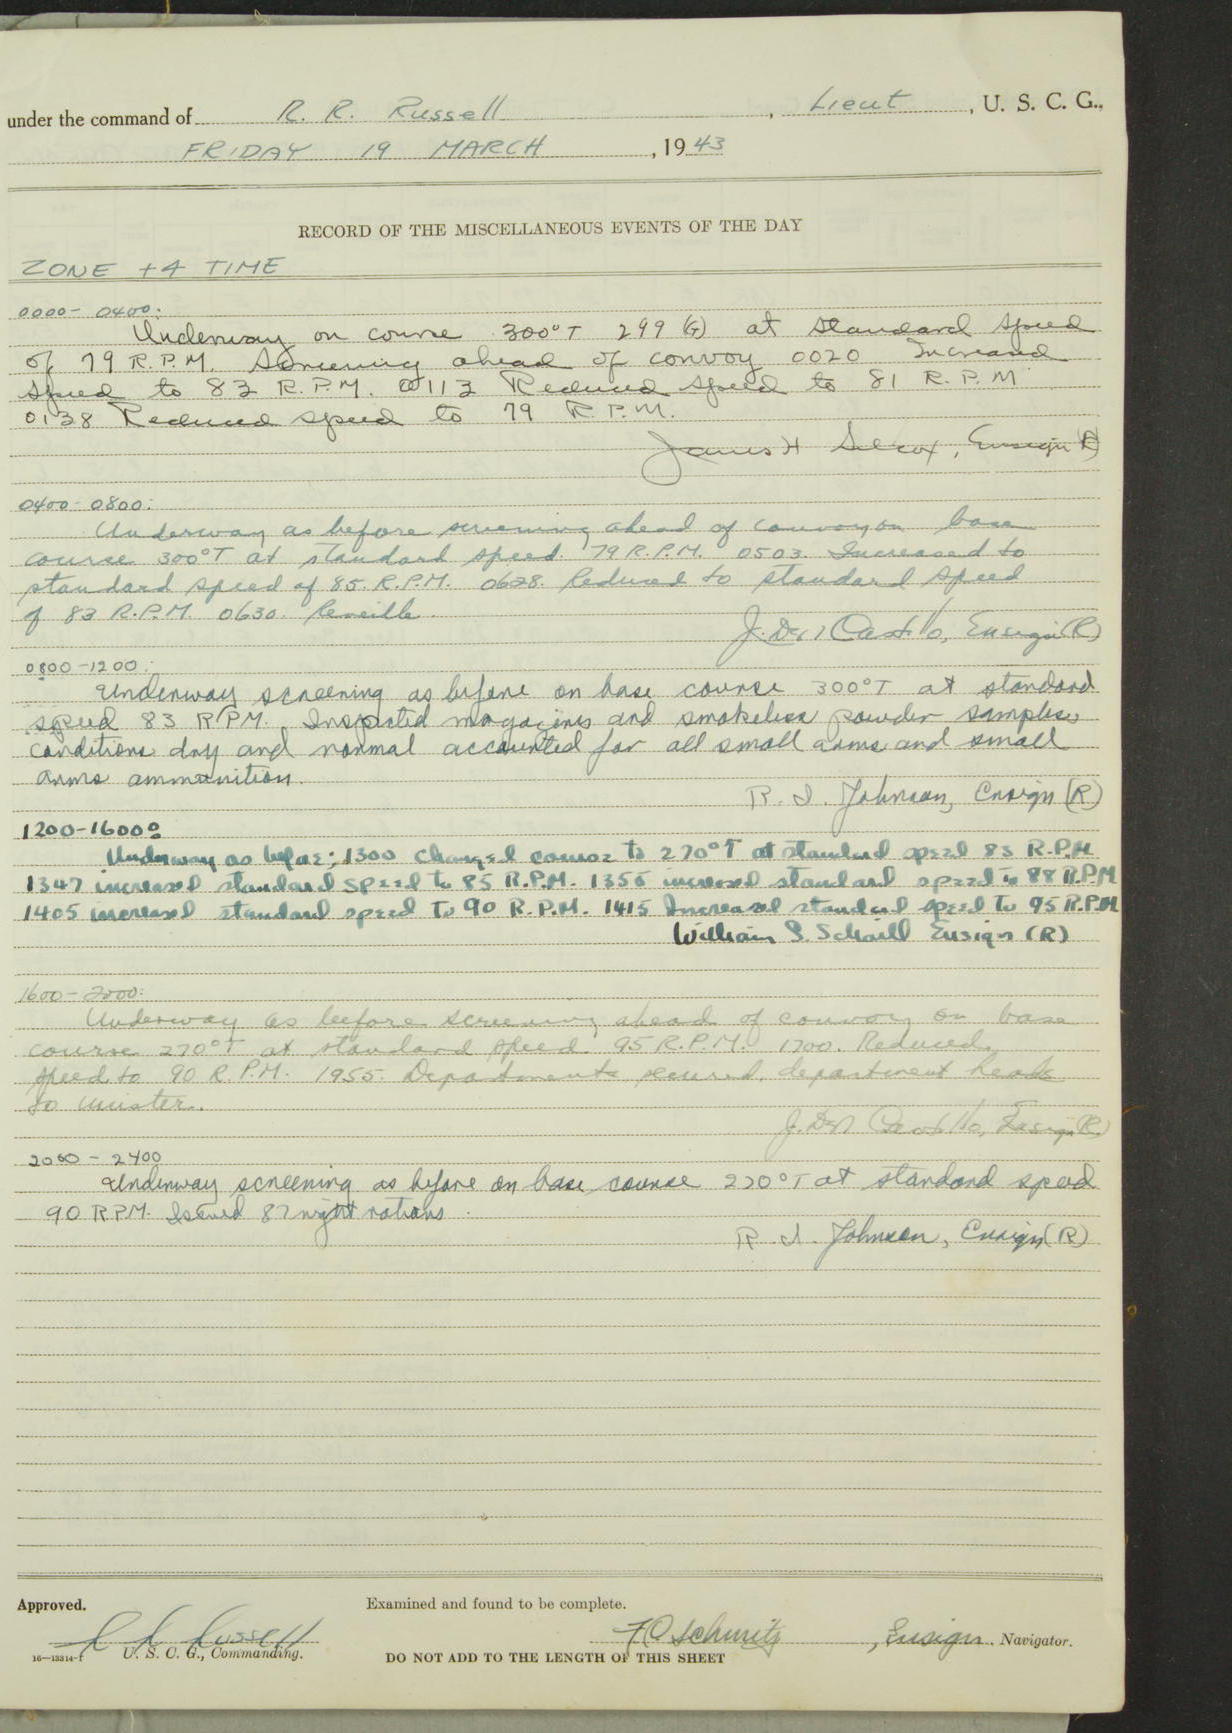 under the command of R. R. Russell, Lieut, U. S. C. G.,
FRIDAY 19 MARCH, 1943
RECORD OF THE MISCELLANEOUS EVENTS OF THE DAY
ZONE +4 TIME
0000 - 0400:
Underway on course 300°T 299 (G) at standard speed
of 79 R.P.M. Screening ahead of convoy 0020 Increased
speed to 83 R.P.M. 0113 Reduced speed to 81 R.P.M
0138 Reduced speed to 79 R.P.M.
James H Silcox, Ensign (R)
0400 - 0800:
Underway as before screening ahead of convoy on base
course 300°T at standard speed 79 R.P.M. 0503. Increased to
standard speed of 85 R.P.M. 0628. Reduced to standard speed
of 83 R.P.M. 0630. Reveille.
J. Del Castillo, Ensign (R)
0800 - 1200:
Underway screening as before on base course 300°T at standard
speed 83 RPM. Inspected magazines and smokeless powder samples,
conditions dry and normal accounted for all small arms and small
arms ammunition.
R. I. Johnson, Ensign (R)
1200-1600:
Underway as before; 1300 changed course to 270°T at standard speed 83 R.P.M
1347 increased standard speed to 85 R.P.M. 1355 increased standard speed to 88 R.P.M
1405 increased standard speed to 90 R.P.M. 1415 Increased standard speed to 95 R.P.M
William S. Schaill Ensign (R)
1600 - 2000:
Underway as before screening ahead of convoy on base
course 270°T at standard speed 95 R.P.M. 1700. Reduced
speed to 90 R.P.M. 1955. Departments secured, department heads
to muster.
J. Del Castillo, Ensign (R)
2000 - 2400
Underway screening as before on base course 270°T at standard speed
90 RPM. Issued 87 night rations.
R. I. Johnson, Ensign (R)
Approved.
Examined and found to be complete.
R R Russell
F O Schmitz, Ensign. Navigator.
16—13314-1 U. S. C. G., Commanding.
DO NOT ADD TO THE LENGTH OF THIS SHEET